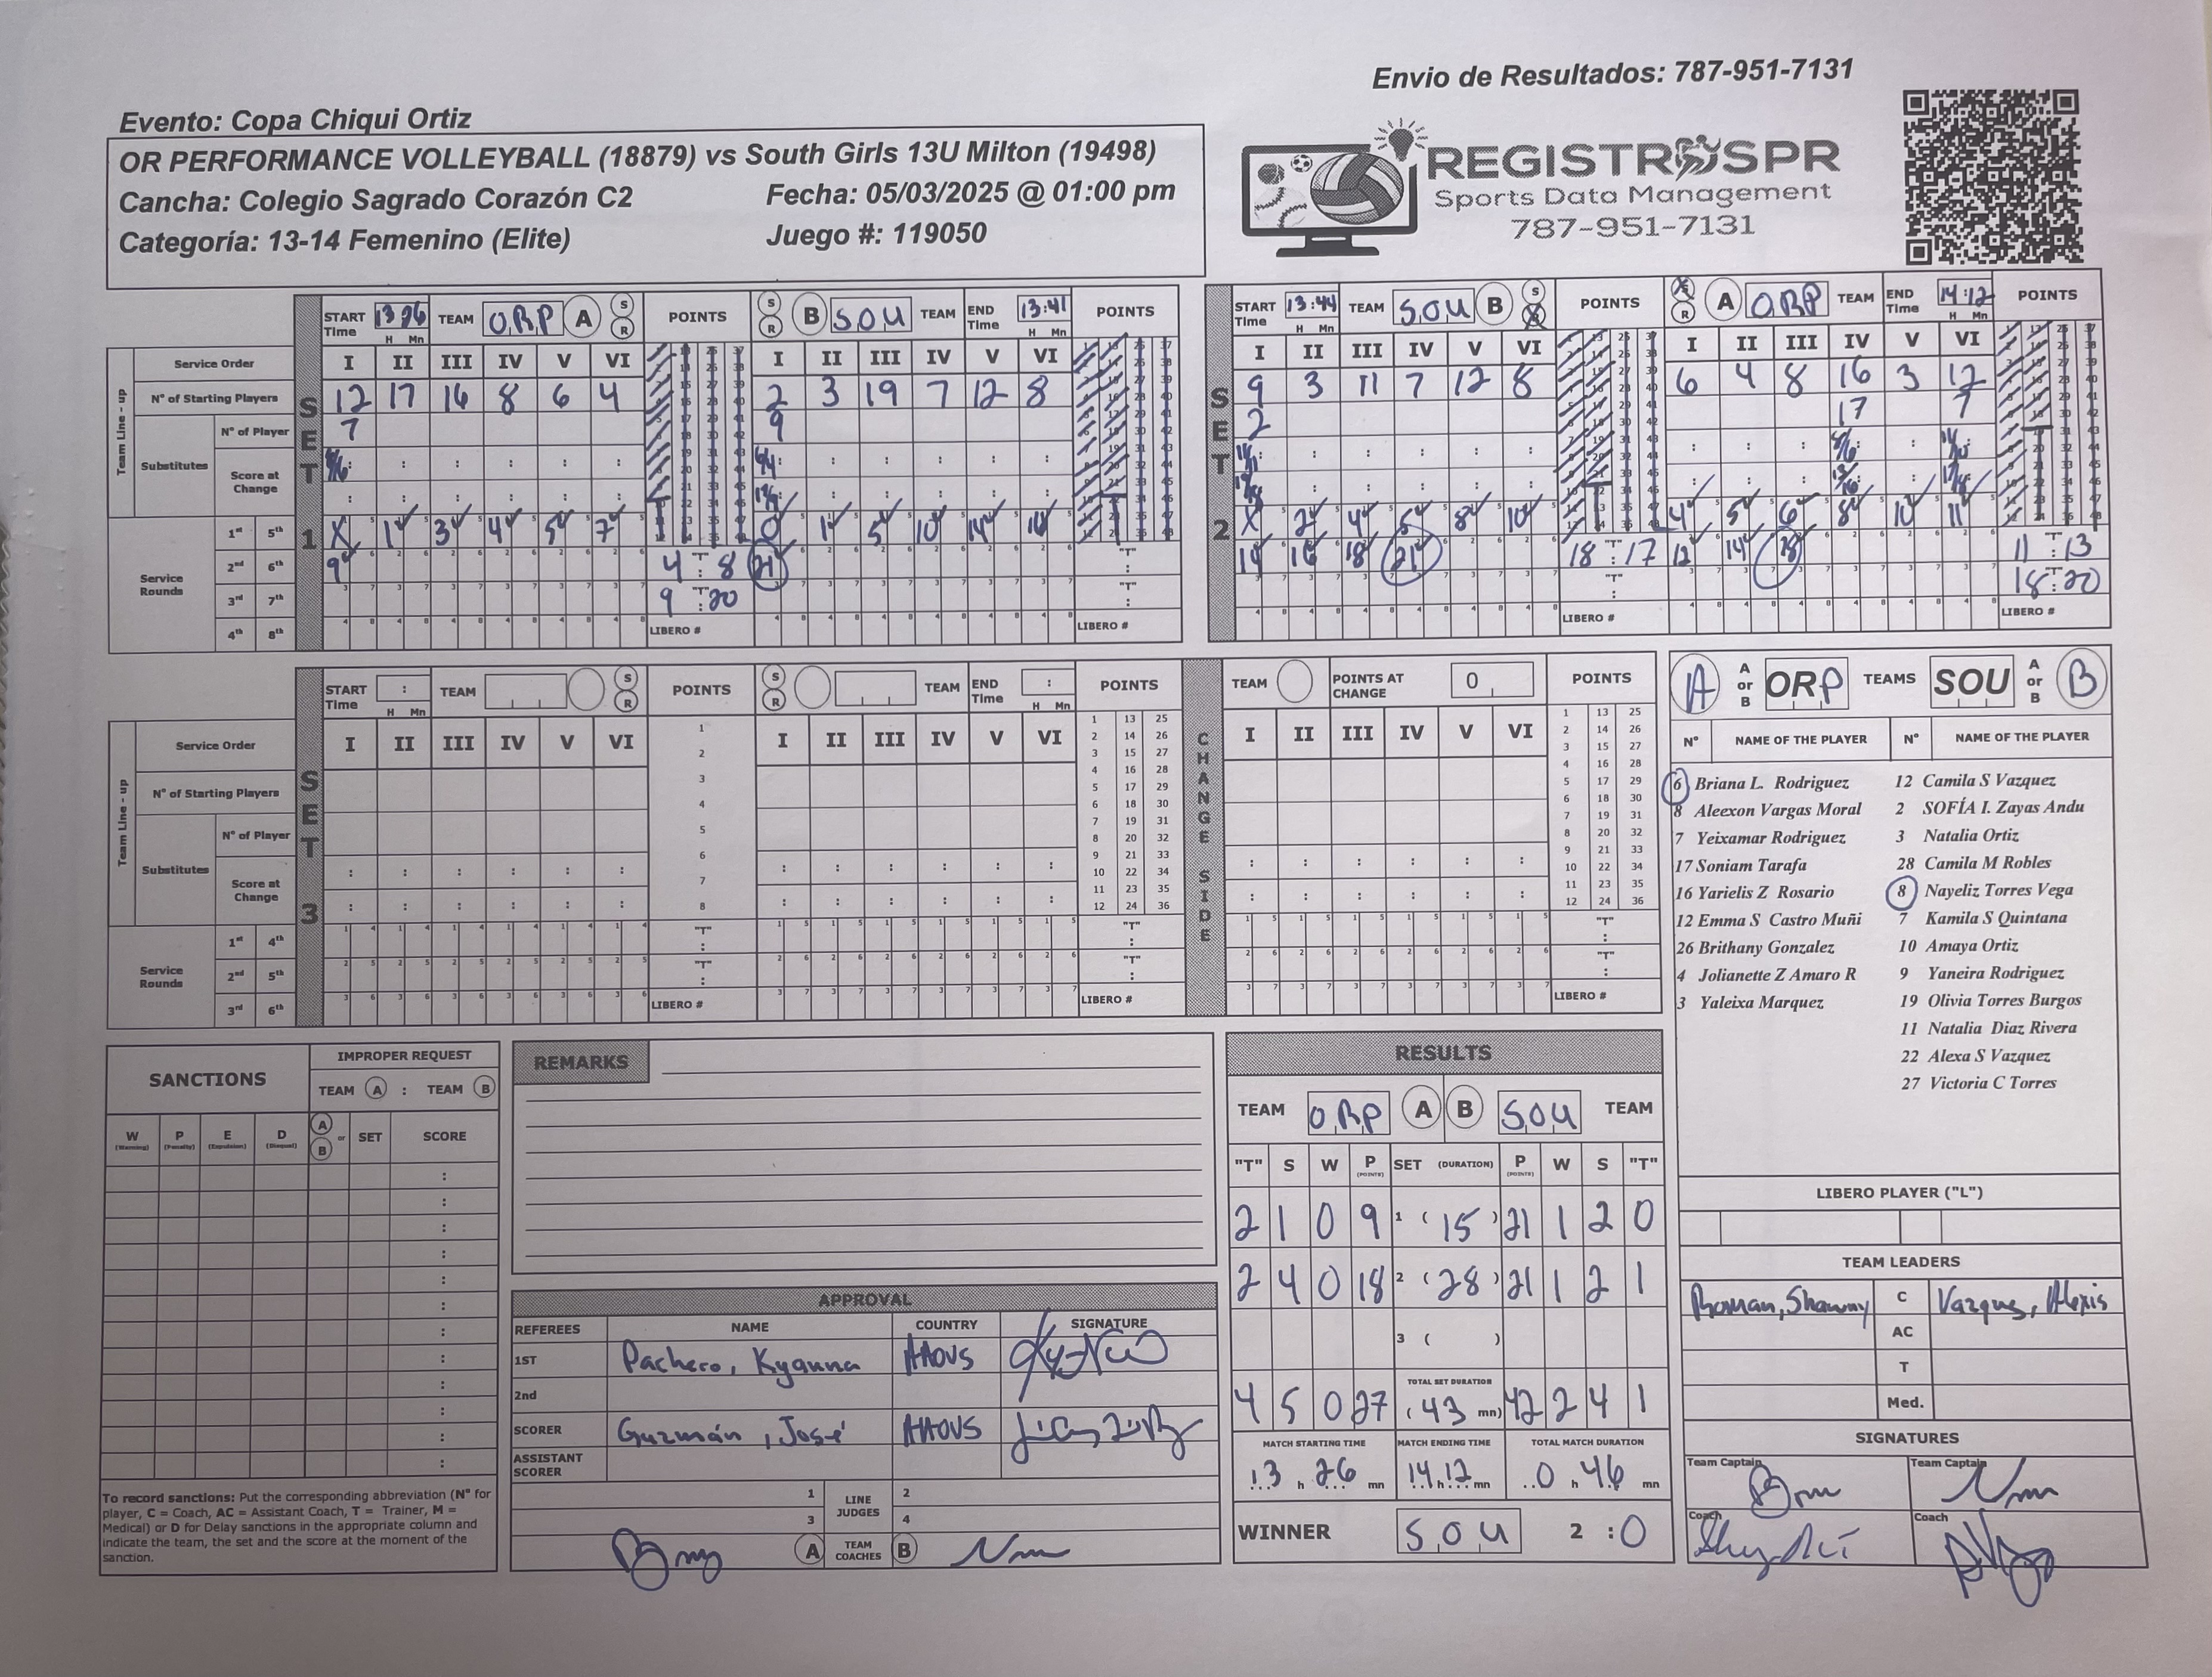 Envio de Resultados: 787-951-7131
Evento: Copa Chiqui Ortiz
OR PERFORMANCE VOLLEYBALL (18879) vs South Girls 13U Milton (19498)
Cancha: Colegio Sagrado Corazón C2 Fecha: 05/03/2025 @ 01:00 pm
Categoría: 13-14 Femenino (Elite) Juego #: 119050
REGISTROSPR
Sports Data Management
787-951-7131
SET 1
START Time 13:26 H Mn TEAM O.R.P A S R POINTS S R B S.O.U TEAM END Time 13:41 H Mn POINTS
Team Line-up
Service Order I II III IV V VI I II III IV V VI
N° of Starting Players 12 17 16 8 6 4 2 3 19 7 12 8
Substitutes N° of Player 7 9
Score at Change
Service Rounds
1st 5th X 1 3 4 5 7 0 1 5 10 14 16
2nd 6th 9 21
3rd 7th
4th 8th
"T" 4 : 8
"T" 9 : 20
LIBERO # LIBERO #
SET 2
START Time 13:44 H Mn TEAM S.O.U B S R POINTS S R A O.R.P TEAM END Time 14:12 H Mn POINTS
I II III IV V VI I II III IV V VI
9 3 11 7 12 8 6 4 8 16 3 12
2 17 7
X 2 4 5 8 10 4 5 6 8 10 11
14 16 18 21 12 14 18
"T" 18 : 17 "T" 11 : 13
"T" 18 : 20
LIBERO # LIBERO #
SET 3
START Time : H Mn TEAM S R POINTS S R TEAM END Time : H Mn POINTS
CHANGE SIDE
TEAM POINTS AT CHANGE 0 POINTS
Team Line-up
Service Order I II III IV V VI I II III IV V VI I II III IV V VI
N° of Starting Players
Substitutes N° of Player
Score at Change
Service Rounds
1st 4th
2nd 5th
3rd 6th
LIBERO # LIBERO # LIBERO #
A A or B ORP TEAMS SOU A or B B
N° NAME OF THE PLAYER N° NAME OF THE PLAYER
6 Briana L. Rodriguez 12 Camila S Vazquez
8 Aleexon Vargas Moral 2 SOFÍA I. Zayas Andu
7 Yeixamar Rodriguez 3 Natalia Ortiz
17 Soniam Tarafa 28 Camila M Robles
16 Yarielis Z Rosario 8 Nayeliz Torres Vega
12 Emma S Castro Muñi 7 Kamila S Quintana
26 Brithany Gonzalez 10 Amaya Ortiz
4 Jolianette Z Amaro R 9 Yaneira Rodriguez
3 Yaleixa Marquez 19 Olivia Torres Burgos
11 Natalia Diaz Rivera
22 Alexa S Vazquez
27 Victoria C Torres
LIBERO PLAYER ("L")
TEAM LEADERS
Roman, Shawny C Vazques, Alexis
AC
T
Med.
SIGNATURES
Team Captain Team Captain
Coach Coach
SANCTIONS
IMPROPER REQUEST
TEAM A : TEAM B
W (Warning) P (Penalty) E (Expulsion) D (Disqual) A or B SET SCORE
To record sanctions: Put the corresponding abbreviation (N° for
player, C = Coach, AC = Assistant Coach, T = Trainer, M =
Medical) or D for Delay sanctions in the appropriate column and
indicate the team, the set and the score at the moment of the
sanction.
REMARKS
APPROVAL
REFEREES NAME COUNTRY SIGNATURE
1ST Pacheco, Kyanna AAOVS
2nd
SCORER Guzmán, José AAOVS
ASSISTANT SCORER
1 LINE JUDGES 2
3 4
A TEAM COACHES B
RESULTS
TEAM O.R.P A B S.O.U TEAM
"T" S W P (POINTS) SET (DURATION) P (POINTS) W S "T"
2 1 0 9 1 (15) 21 1 2 0
2 4 0 18 2 (28) 21 1 2 1
3 ( )
TOTAL SET DURATION
4 5 0 27 (43 mn) 42 2 4 1
MATCH STARTING TIME MATCH ENDING TIME TOTAL MATCH DURATION
13 h 26 mn 14 h 12 mn 0 h 46 mn
WINNER S.O.U 2 : 0